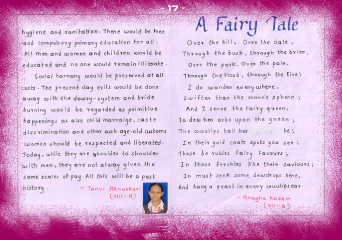 17
hygiene and sanitation. There would be free
and compulsory primary education for all.
All men and women and children would be
educated and no one would remain illiterate.
Social harmony would be preserved at all
costs. The present day evils would be done
away with the dowry-system and bride
burning would be regarded as primitive
happenings as also child marriage, caste
discrimination and other such age-old customs.
Women should be respected and liberated.
Today, while they are shoulder to shoulder
with men, they are not always given the
same scales of pay. All this will be a past
history.
- Tanvi Akhurkar
(VIII-A)
A Fairy Tale
Over the hill, Over the dale,
Through the bush, through the brier,
Over the park, Over the pale,
Through the flood, through the fire;
I do wander everywhere,
Swifter than the moon's sphere;
And I serve the Fairy queen,
To dew her orbs upon the green;
The cowslips tall her be;
In their gold coats spots you see;
Those be rubies Fairy favours;
In those freckles live their saviours;
I must seek some dewdrops here,
And hang a pearl in every cowslips ear
- Anagha Kadam
(VIII-B)